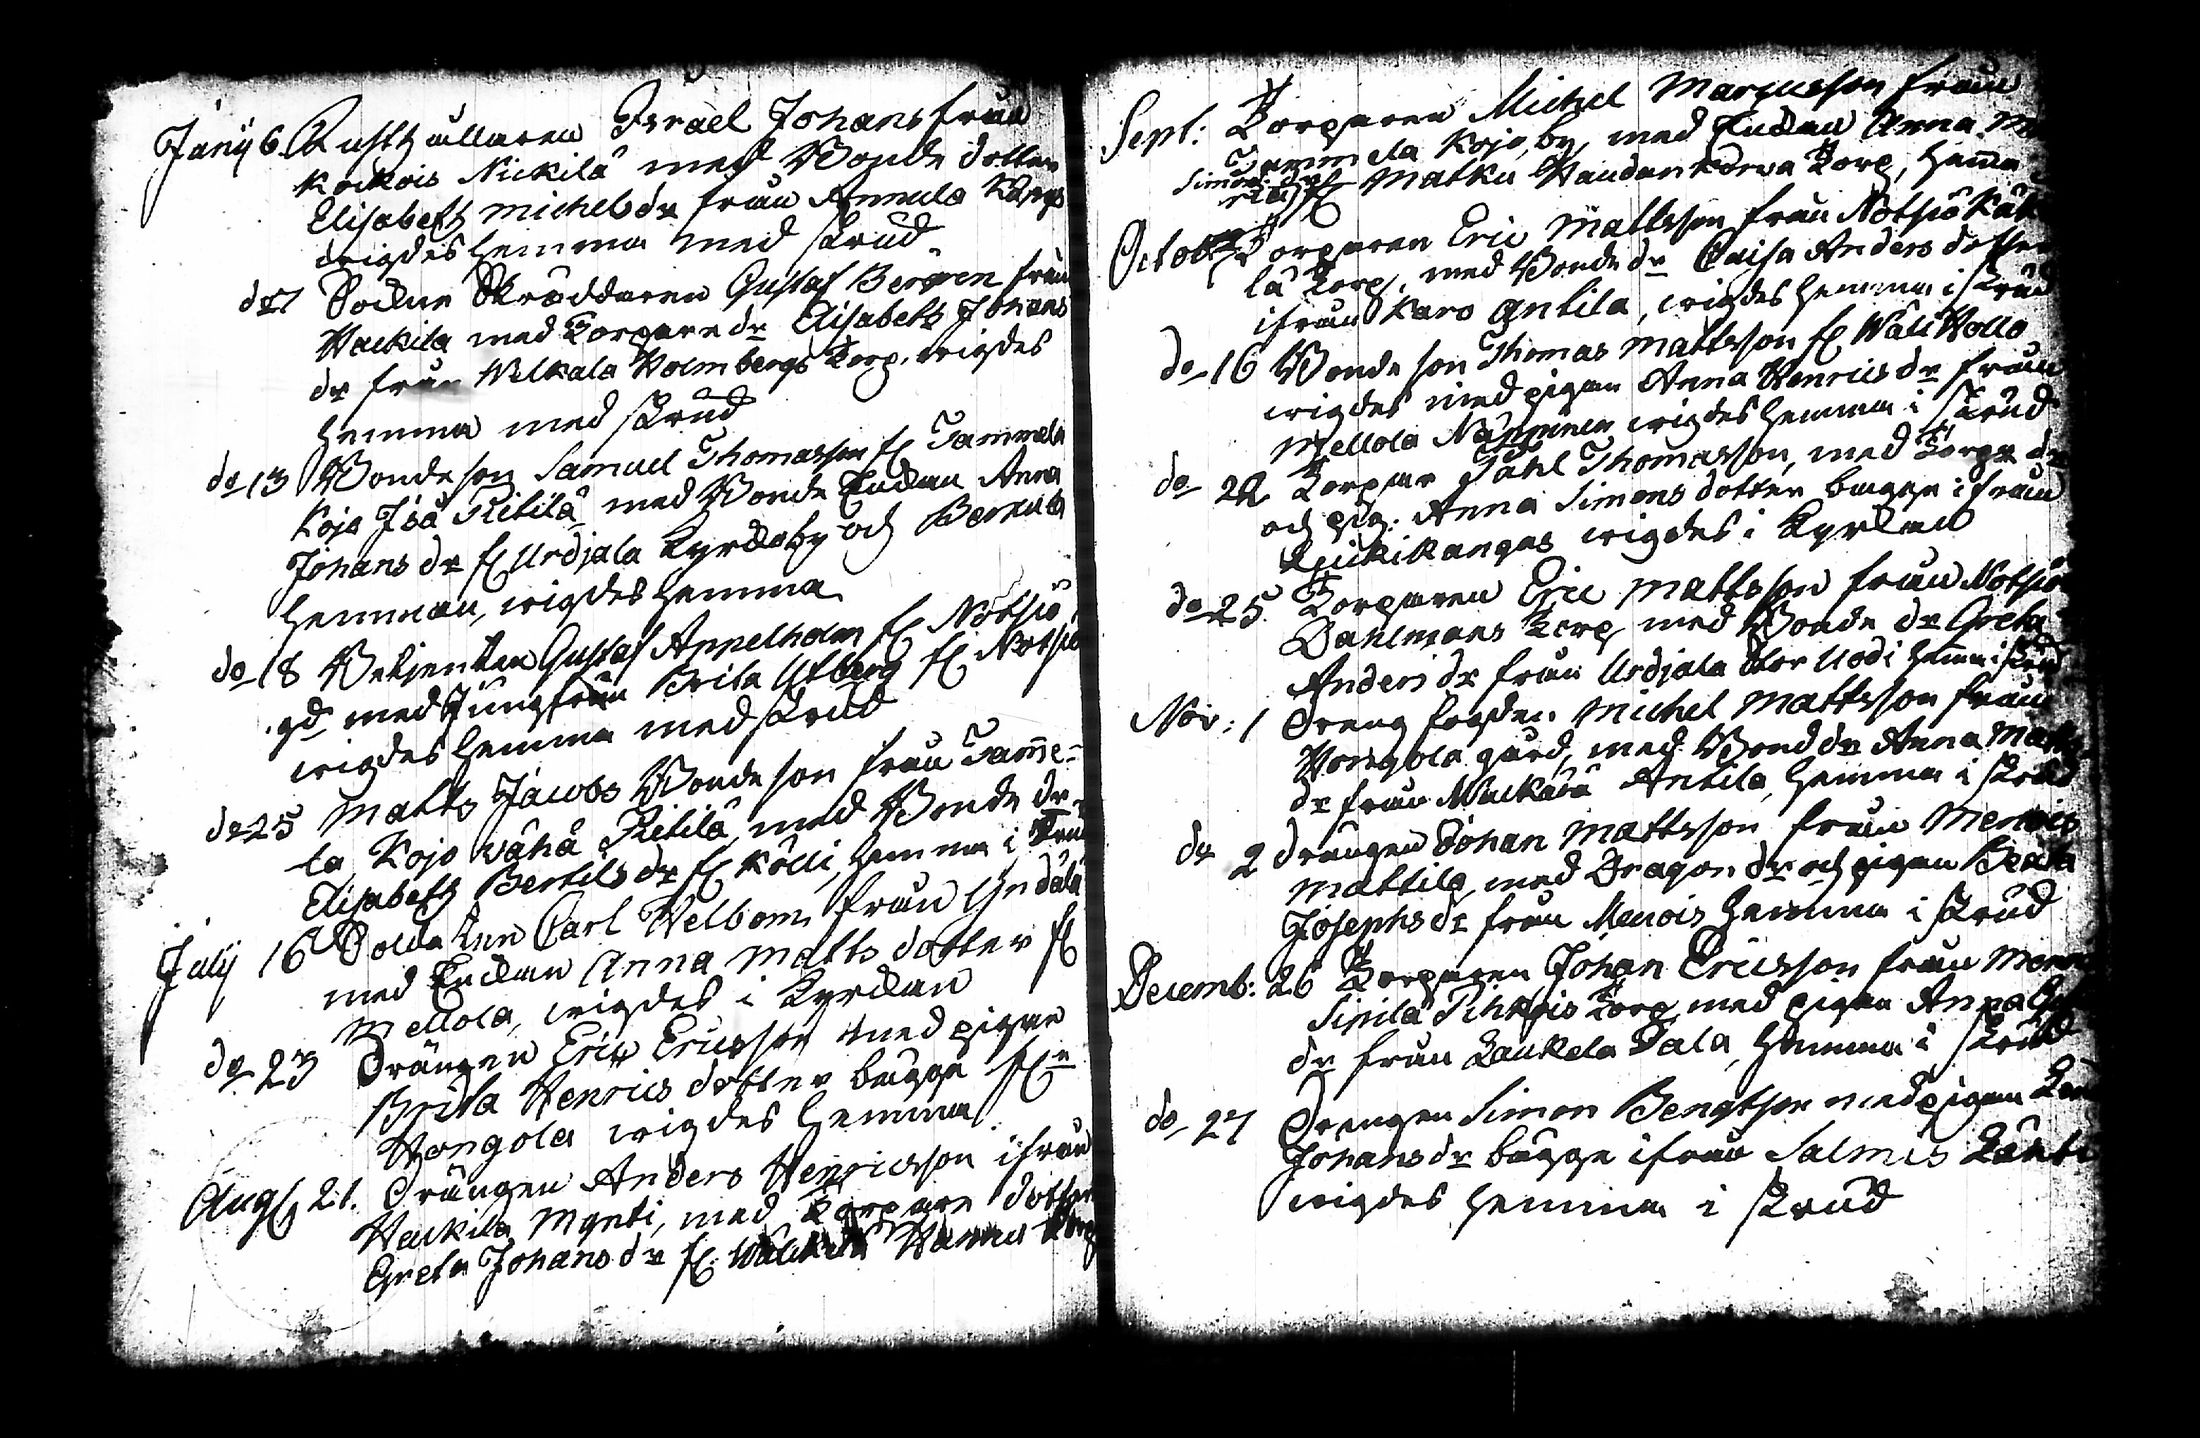 Junij 6 Rusthållaren Israel Johans från
Kockois Nickilä med Bonde dotter
Elisabeth Michelsdr från Annula
wigdes hemma med skrud
do 7 Sockne Skräddaren Gustaf Bergren från
Hackila med Torpare dr Elisabeth Johans
dr från Welkala Holmbergs Torp, wigdes
hemma med skrud
do 13 Bonde son Samuel Thomasson fr Tammela
Kojo Iso Pitilä med Bonde Enckan Anna
Johans dr fr Urdjala Kyrckoby och
hemman, wigdes hemma
do 18 Betjenten Gustaf Appelholm fr Notsiö
gd med Jungfrun Brita Utberg fr Notsiö
wigdes hemma med skrud
do 25 Matts Jacobs Bonde son från Tamme-
la Kojo wähä Pitilä med Bonde dr
Elisabeth Bertils dr fr Kölli, hemma i skrud
July 16 Soldaten Carl Welbom från
med Enckan Anna Matts dotter fr
Mellola, wigdes i Kyrckan
do 23 Drängen Eric Ericsson med pigan
Brita Henrics dotter bägge fr
Hongola wigdes hemma
Aug 21. Drängen Anders Henricsson ifrån
Hackila Mynti, med Torpare dotter
Greta Johans dr fr. Torp
Sept: Torparen Michel Marcusson från
Tammela Kojo by, med Enckan Anna
Simons dr fr Matku Torp, hemma
Octob: Torparen Eric Mattsson från Notsiö
lä Torp, med Bonde dr Caisa Anders dotter
ifrån Karo Antila, wigdes hemma i skrud
do 16 Bonde son Thomas Mattsson fr Wäli Hollo
wigdes med pigan Anna Henrics dr från
Mellola wigdes hemma i skrud
do 22 Torpar Påhl Thomasson, med Torpr dr
och pig. Anna Simons dotter bägge ifrån
wigdes i Kyrckan
do 25. Torparen Eric Mattsson från Notsiö
Dahlmans Torp med Bonde dr Greta
Anders dr från Urdjala Stor Uodi hemma i skrud
Nov: 1 Dreng fogden Michel Mattsson från
Hongola gård, med Bond dr Anna Matts
dr från Antila, hemma i skrud
do 2 drängen Johan Mattsson från Menois
Mattila, med Dragon dr och pigan Beata
Josephs dr från Menois hemma i skrud
Decemb: 26 Torparen Johan Ericsson från
Sipilä Torp med pigan Anna
dr från Laukela Sala, hemma i skrud
do 27 Drengen Simon Bengtson med pigan
Johans dr bägge ifrån Salmis
wigdes hemma i skrud